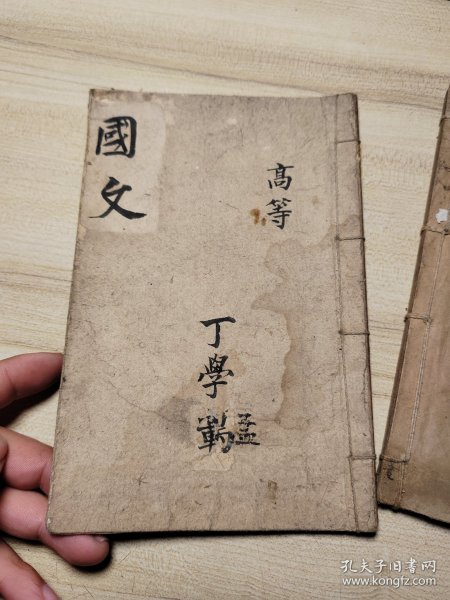 國文
高等
丁學
孟
孔夫子旧书网
www.kongfz.com